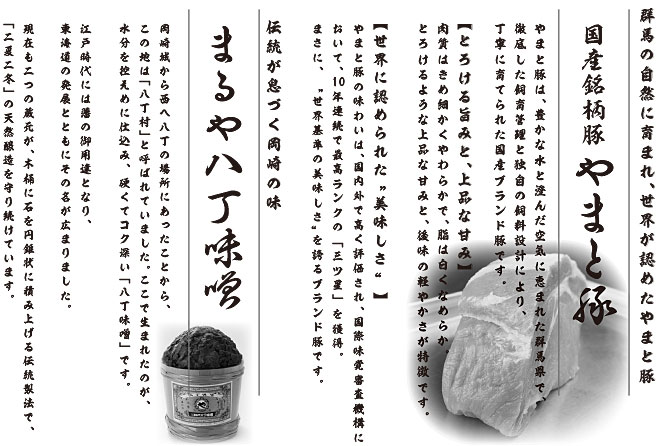 群馬の自然に育まれ、世界が認めたやまと豚
国産銘柄豚 やまと豚
やまと豚は、豊かな水と澄んだ空気に恵まれた群馬県で、
徹底した飼育管理と独自の飼料設計により、
丁寧に育てられた国産ブランド豚です。
【とろける旨みと、上品な甘み】
肉質はきめ細かくやわらかで、脂は白くなめらか。
とろけるような上品な甘みと、後味の軽やかさが特徴です。
【世界に認められた〝美味しさ〟】
やまと豚の味わいは、国内外で高く評価され、国際味覚審査機構に
おいて、10年連続で最高ランクの「三ツ星」を獲得。
まさに、〝世界基準の美味しさ〟を誇るブランド豚です。
伝統が息づく岡崎の味
まるや八丁味噌
岡崎城から西へ八丁の場所にあったことから、
この地は「八丁村」と呼ばれていました。ここで生まれたのが、
水分を控えめに仕込み、硬くてコク深い「八丁味噌」です。
江戸時代には藩の御用達となり、
東海道の発展とともにその名が広まりました。
現在も二つの蔵元が、木桶に石を円錐状に積み上げる伝統製法で、
「二夏二冬」の天然醸造を守り続けています。